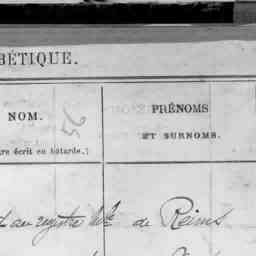 BÉTIQUE.
NOM.
re écrit en bâtarde.)
PRÉNOMS
ET SURNOMS.
au registre de Reims